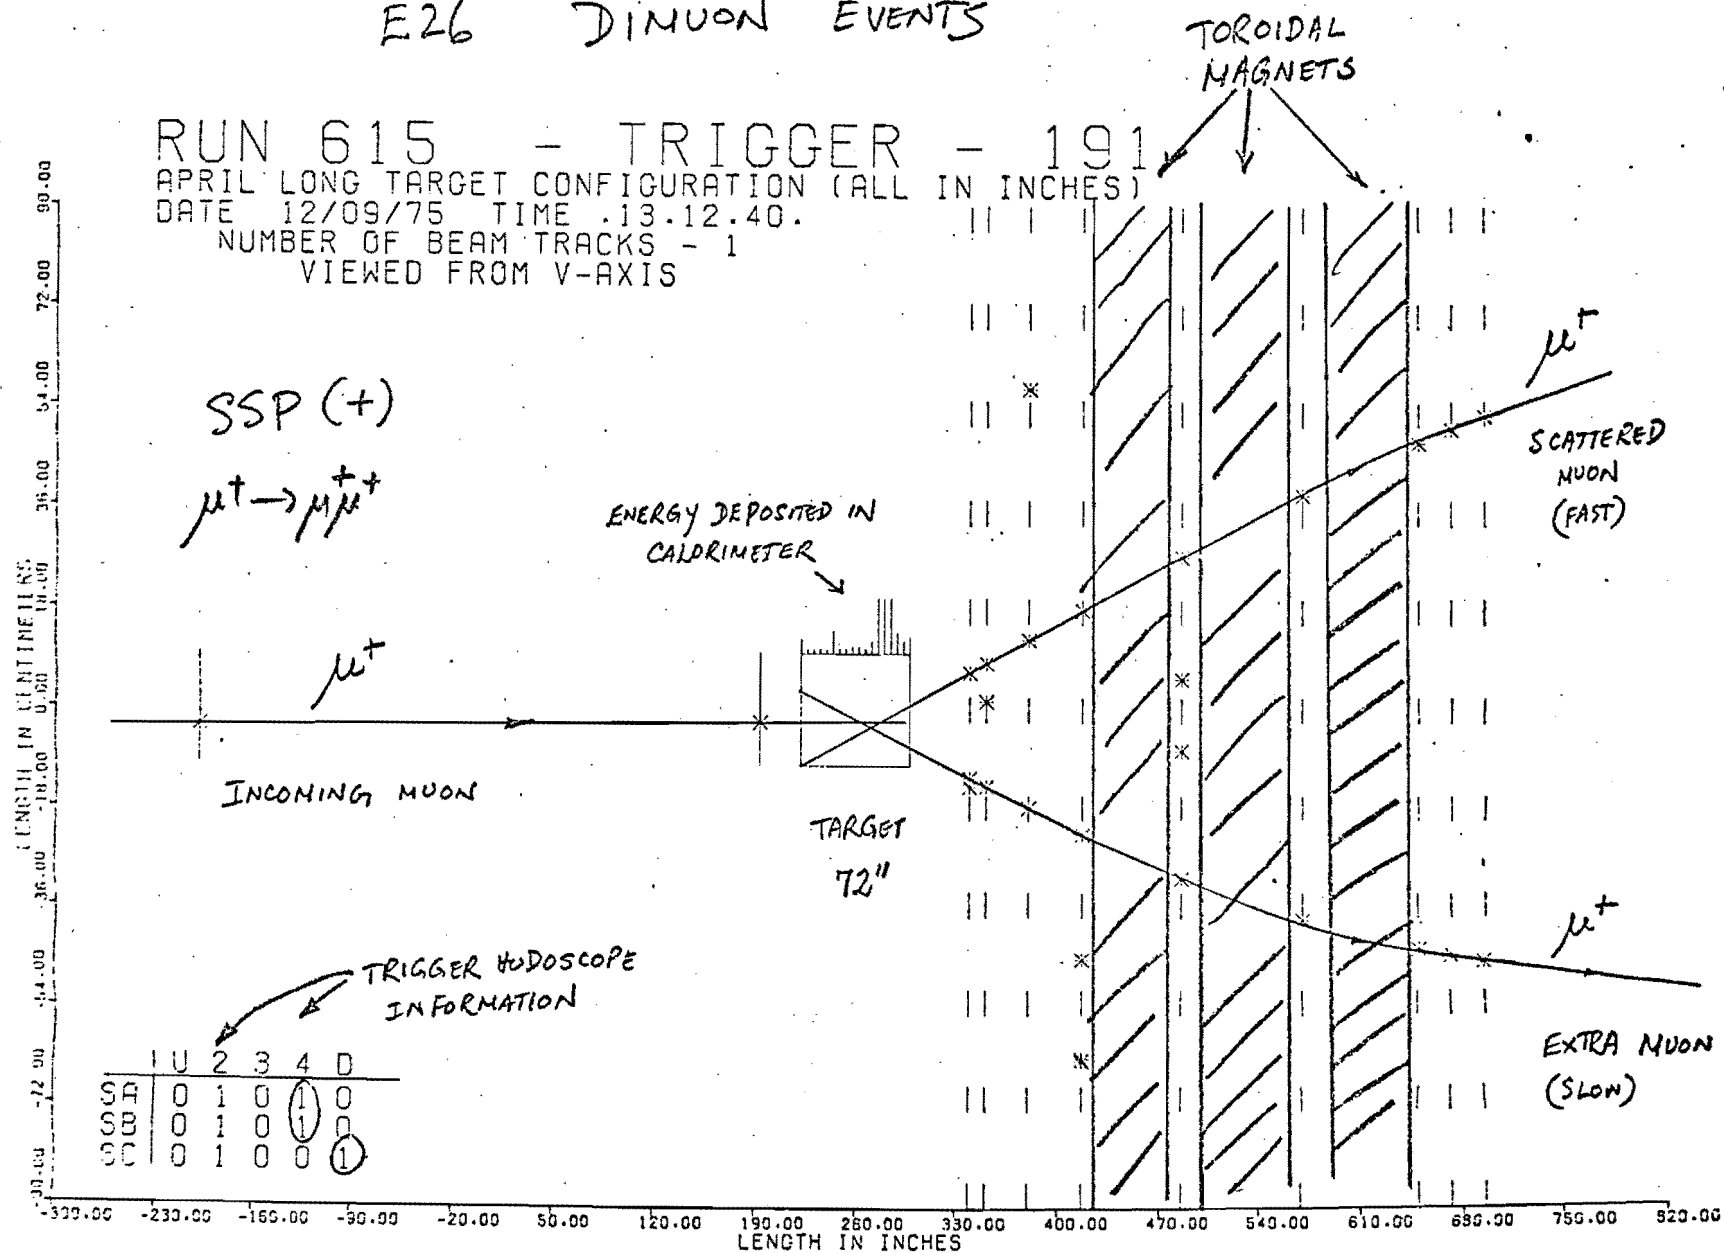 E26 DIMUON EVENTS
TOROIDAL
MAGNETS
RUN 615 - TRIGGER - 191
APRIL LONG TARGET CONFIGURATION (ALL IN INCHES)
DATE 12/09/75 TIME .13.12.40.
NUMBER OF BEAM TRACKS - 1
VIEWED FROM V-AXIS
SSP (+)
μ+ → μ+μ+
ENERGY DEPOSITED IN
CALORIMETER
μ+
SCATTERED
MUON
(FAST)
μ+
INCOMING MUON
TARGET
72"
μ+
EXTRA MUON
(SLOW)
TRIGGER HODOSCOPE
INFORMATION
1 U 2 3 4 D
SA 0 1 0 1 0
SB 0 1 0 1 0
SC 0 1 0 0 1
90.00
72.00
54.00
36.00
18.00
0.00
-18.00
-36.00
-54.00
-72.00
-90.00
LENGTH IN CENTIMETERS
-230.00 -160.00 -90.00 -20.00 50.00 120.00 190.00 260.00 330.00 400.00 470.00 540.00 610.00 680.00 750.00 820.00
LENGTH IN INCHES